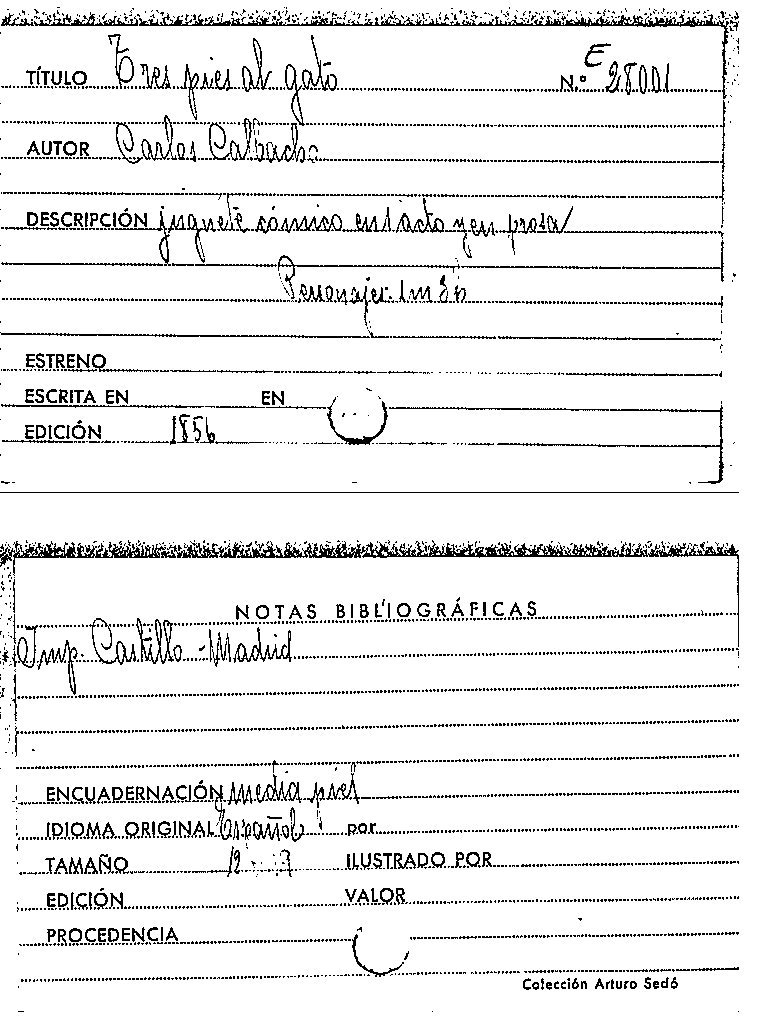 TÍTULO Tres pies al gato N.º E 28001
AUTOR Carlos Calbacho
DESCRIPCIÓN juguete cómico en 1 acto y en prosa
Personajes: 1m 3h
ESTRENO
ESCRITA EN EN
EDICIÓN 1856
NOTAS BIBLIOGRÁFICAS
Imp. Castillo - Madrid
ENCUADERNACIÓN media piel
IDIOMA ORIGINAL Español por
TAMAÑO 12 ILUSTRADO POR
EDICIÓN VALOR
PROCEDENCIA
Colección Arturo Sedó